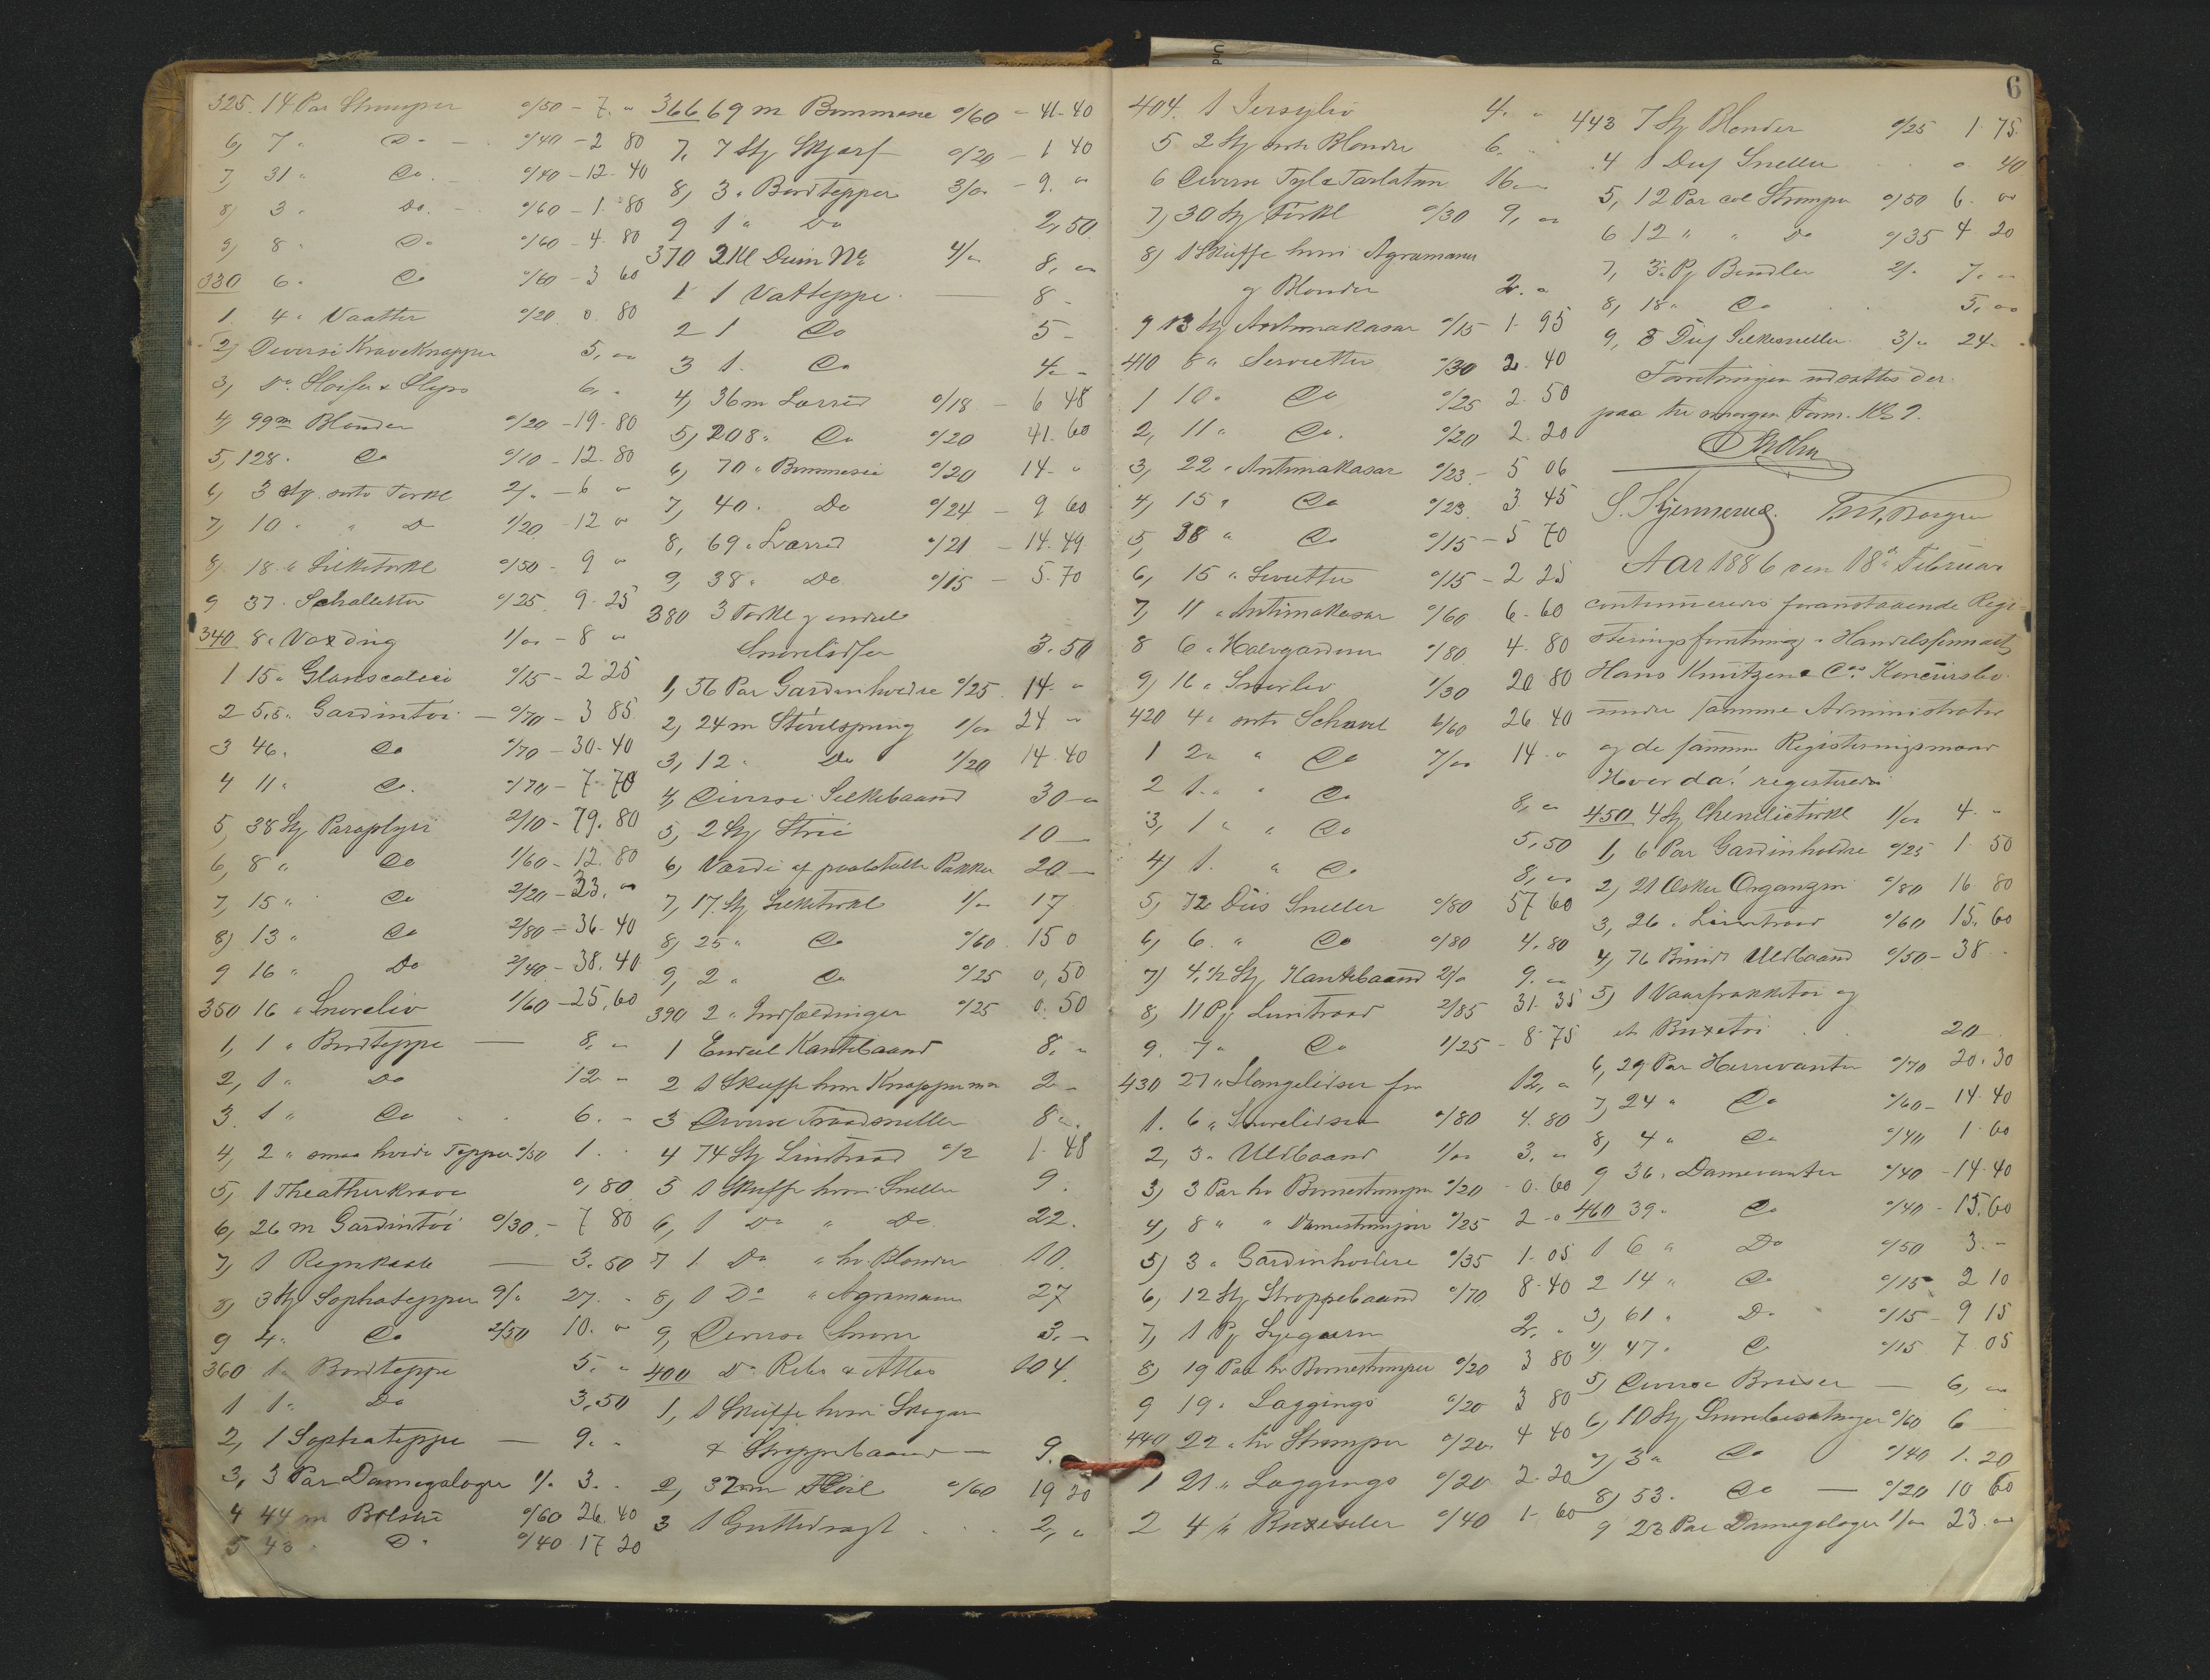 325 14 Par Strømper o/50 - 7. "
6, 7 " Do - o/40 - 2 80
7, 31 " Do - o/40 - 12. 40
8, 3 " Do. - o/60 - 1. 80
9, 8 " Do o/60 - 4. 80
330 6 " Do o/60 - 3 60
1. 4 " Vaatter o/20 0. 80
2, Diverse Kraveknapper 5, "
3, Do. & Slips 6, "
4, 99 m Blonder o/20 - 19. 80
5, 128 " Do o/10 - 12. 80
6, 3 Stp. sorte Tørkl 2/. - 6 "
7, 10 " " Do 1/20 - 12 "
8, 18 " Silketørkl o/50 - 9 "
9 37 " o/25 9. 25
340 8 " Voxdug 1/" - 8 "
1 15 " o/15 - 2 25
2 5,5 " Gardintøi - o/70 - 3 85
3 46 " Do o/70 - 30. 40
4 11 " Do. o/70 - 7. 70
5, 38 Stp Paraplyer 2/10 - 79. 80
6, 8 " Do 1/60 - 12. 80
7, 15 " Do 2/20 - 33. "
8, 13 " Do 2/80 - 36. 40
9 16 " Do 2/40 - 38. 40
350 16 " Snoreliv 1/60 - 25,60
1, 1 " Bordteppe — 8. "
2, 1 " Do 12 -
3. 1 " Do 6. -
4, 2 " smaa hvide Tepper o/50 1. .
5, 1 Theatherkrave o,80
6, 26 m Gardintøi o/30 - 7 80
7, 1 Regnkaabe — 3. 50
8, 3 Stp Sophatepper 9/" 27. -
9 4 " Do 2/50 10. "
360 1 " Bordteppe 5. "
1 1 " Do 3,50
2, 1 Sophateppe — 9. "
3, 3 Par Damegaloger 1/. 3. .
4 44 m Bolster o/60 26. 40
5 43 " Do o/40 17 20
366 69 m Bommesie o/60 - 41. 40
7, 7 Stp Skjærf o/20 - 1 40
8, 3 " Bordtepper 3/" - 9. "
9 1 " Do 2,50
370 2 4/" 8, "
1 1 Vatteppe — 8 -
2 1 Do 5 -
3 1 . Do 4. -
4, 36 m Lærred o/18 - 6 48
5, 208 " Do o/20 41. 60
6, 70 " Bommesie o/20 14. "
7, 40 " Do o/24 - 9 60
8, 69 " Lærred o/21 - 14. 49
9, 38 " Do o/15 - 5. 70
380 3 Tørkl g endeel
Snorelidser 3. 50
1, 56 Par Gardinholdre o/25 14. "
2, 24 m Støvelspring 1/" 24 "
3, 12 " Do 1/20 14. 40
4, Diverse Silkebaand 30 "
5, 2 Stp Strie 10 —
6, Værdi af paabetalte Pakker 20 —
7, 17 Stp Silketørkl 1/" 17
8, 25 " Do o/60 15 0
9, 2 " Do o/25 0,50
390 2 " Indfældninger o/25 0. 50
1 Endeel Kantebaand 8. "
2 1 Skuffe hvori Knapper m m 2 -
3 Diverse Traadsneller 8 ".
4 74 Stp Lintraad o/2 1. 48
5 1 Skuffe hvori Sneller 9.
6, 1 Do " Do 22.
7 1 Do " hv. Blonder 10.
8, 1 Do " Agramaner 27
9, Diverse Snorer 3. -
400 Do Rebs & Atlas 104.
1, 1 Skuffe hvori
& Stroppebaand — 9.
2, 32 m o/60 19 20
3 1 Guttedragt 2, "
6
404. 1 4. "
5 2 Stp sorte Blonder 6. "
6 Diverse Tyl & Tarlatan 16. —
7, 30 Stp Tørkl o/30 9, "
8, 1 Skuffe hvori Agramaner
g Blonder 2. "
9 13 Stp Antimakasar o/15 1. 95
410 8 " Servietter o/30 2. 40
1 10 " Do o/25 2. 50
2, 11 " Do. o/20 2. 20
3, 22 " Antimakasar o/23 - 5 06
4, 15 " Do o/23 3 45
5, 38 " Do o/15 - 5 70
6, 15 " Servietter o/15 - 2 25
7, 11 " Antimakasar o/60 6. 60
8 6 " Halvgardiner o/80 4. 80
9, 16 " Snorliv 1/30 20 80
420 4 " sorte Schavl 6/60 26. 40
1 2 " " Do 7/" 14. "
2 1 . " Do 8, "
3, 1 " " Do 5,50
4, 1 . " Do 8, "
5, 72 Dus Sneller o/80 57 60
6, 6 . " Do o/80 4. 80
7, 4 ½ Stp Kantebaand 2/" 9. "
8, 11 Pj Lintraad 2/85 31. 35
9. 7 " Do 1/25 - 8. 75
430 27 " 12, "
1. 6 " Snorelidser o/80 4. 80
2, 3 " Uldbaand 1/" 3, "
3, 3 Par hv Børnestrømper o/20 0. 60
4, 8 " " Damestrømper o/25 2 -"
5, 3 " Gardinholdere o/35 1. 05
6, 12 Stp Stroppebaand o/70 8. 40
7, 1 Pj Syegarn 2, "
8, 19 Par hv Børnestrømper o/20 3 80
9 19 " Laggings o/20 3 80
440 22 " hv Strømper o/20 4 40
1 21 " Laggings o/20 2. 20
2 4 " Buxeseler o/40 1. 60
443 7 Stp Blonder o/25 1. 75.
4 1 Dus Sneller o. 40
5, 12 Par col Strømper o/50 6. "
6 12 " " Do o/35 4. 20
7, 3 ½ Pj Bendler 2/. 7. "
8, 18 " Do 5, "
9, 8 Dus Silkesneller 3/" 24 "
Forretningen udsattes der-
paa til imorgen Form. Kl. 9.
S. Stjernerud. Borgen
Aar 1886 den 18de Februar
continueredes foranstaaende Regi-
steringsforretning i Handelsfirmaet
Hans Knutzen & Cos Koncursbo
under samme Administrator
og de samme Registeringsmænd
Hvor da! registreredes
450 4 Stp Chenilietørkl 1/" 4. -
1, 6 Par Gardinholdre o/25 1. 50
2, 21 Æsker Organzin o/80 16 80
3, 26 " Lintraad o/60 15. 60
4, 76 Bundt Uldbaand o/50 - 38 -
5, 1 Vaarfrakketøi og
et Buxetøi 20
6, 29 Par Herrevanter o/70 20. 30
7, 24 " Do o/60 - 14. 40
8, 4 " Do o/40 1. 60
9 36 " Damevanter o/40 - 14. 40
460 39 " Do o/40 - 15. 60
1 6 " Do o/50 3. -
2 14 " Do o/15 - 2 10
3, 61 " Do o/15 - 9 15
4, 47 " Do o/15 7. 05
5, Diverse — 6, "
6, 10 Stp Snorebesætninger o/60 6 —
7, 3 " Do o/40 1. 20
8, 53 . Do — o/20 10 60
9 23 Par Damegaloger 1/" 23. "